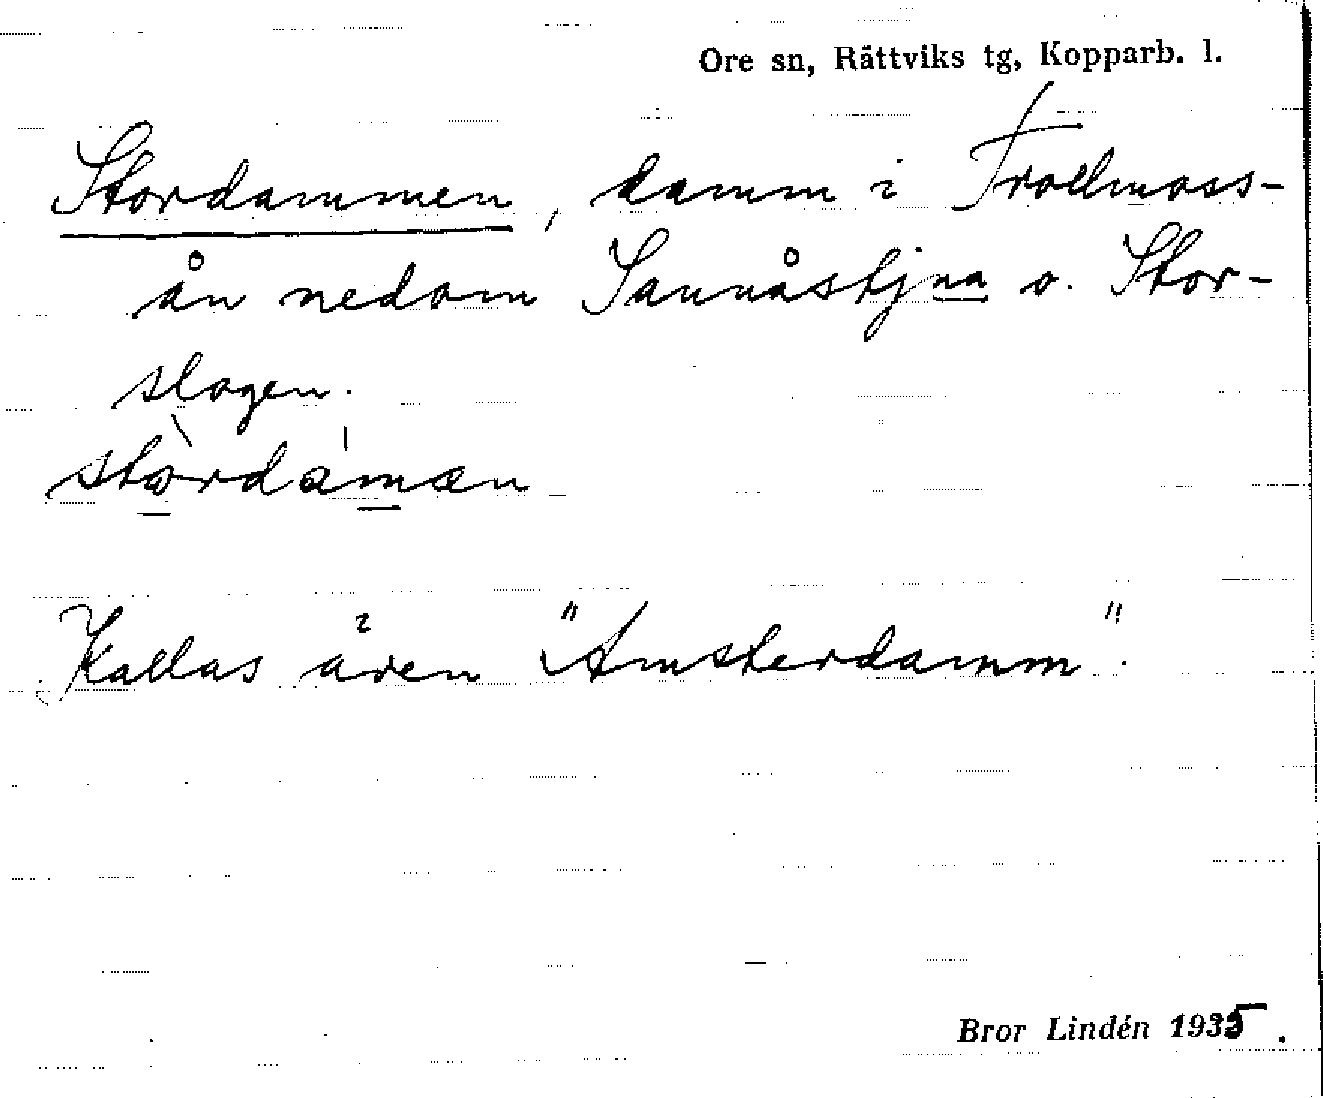 Ore sn, Rättviks tg, Kopparb. l.
Stordammen, damm i Trollmoss-
ån nedom Sannåstjna o. Stor-
slogen.
stòrdáman
Kallas även "Amsterdamm".
Bror Lindén 1935.